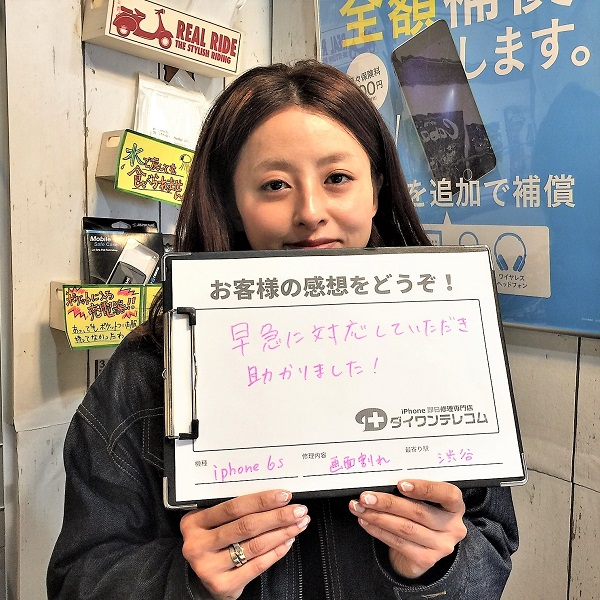 REAL RIDE
THE STYLISH RIDING
全額補償
します。
を追加で補償
ワイヤレス
ヘッドフォン
Mobile
お客様の感想をどうぞ！
早急に対応していただき
助かりました！
iPhone 即日修理専門店
ダイワンテレコム
機種 iphone 6s 修理内容 画面割れ 最寄り駅 渋谷